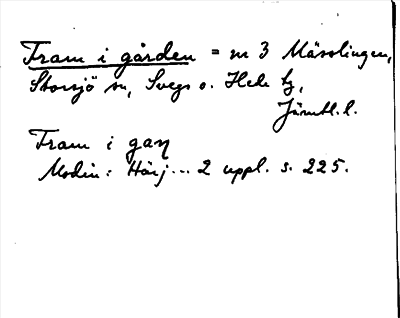 Fram i gården = nr 3 Mässlingen,
Storsjö sn, Svegs o. Hede tg,
Jämtl. l.
Fram i gaꞃ
Modin: Härj... 2 uppl. s. 225.